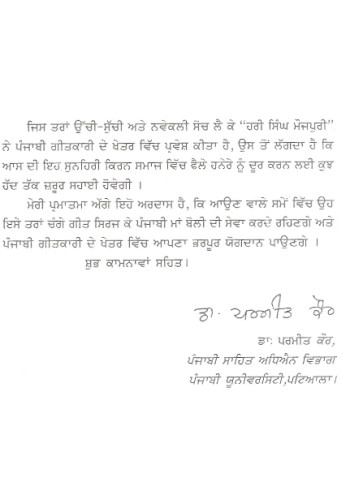 ਜਿਸ ਤਰਾਂ ਉੱਚੀ-ਸੁੱਚੀ ਅਤੇ ਨਵੇਕਲੀ ਸੋਚ ਲੈ ਕੇ “ਹਰੀ ਸਿੰਘ ਮੌਜਪੁਰੀ”
ਨੇ ਪੰਜਾਬੀ ਗੀਤਕਾਰੀ ਦੇ ਖੇਤਰ ਵਿੱਚ ਪ੍ਰਵੇਸ਼ ਕੀਤਾ ਹੈ, ਉਸ ਤੋਂ ਲੱਗਦਾ ਹੈ ਕਿ
ਆਸ ਦੀ ਇਹ ਸੁਨਹਿਰੀ ਕਿਰਨ ਸਮਾਜ ਵਿੱਚ ਫੈਲੇ ਹਨੇਰੇ ਨੂੰ ਦੂਰ ਕਰਨ ਲਈ ਕੁਝ
ਹੱਦ ਤੱਕ ਜ਼ਰੂਰ ਸਹਾਈ ਹੋਵੇਗੀ ।
ਮੇਰੀ ਪ੍ਰਮਾਤਮਾ ਅੱਗੇ ਇਹੋ ਅਰਦਾਸ ਹੈ, ਕਿ ਆਉਣ ਵਾਲੇ ਸਮੇਂ ਵਿੱਚ ਉਹ
ਇਸੇ ਤਰਾਂ ਚੰਗੇ ਗੀਤ ਸਿਰਜ ਕੇ ਪੰਜਾਬੀ ਮਾਂ ਬੋਲੀ ਦੀ ਸੇਵਾ ਕਰਦੇ ਰਹਿਣਗੇ ਅਤੇ
ਪੰਜਾਬੀ ਗੀਤਕਾਰੀ ਦੇ ਖੇਤਰ ਵਿੱਚ ਆਪਣਾ ਭਰਪੂਰ ਯੋਗਦਾਨ ਪਾਉਣਗੇ ।
ਸ਼ੁਭ ਕਾਮਨਾਵਾਂ ਸਹਿਤ।
ਡਾ. ਪਰਮੀਤ ਕੌਰ
ਡਾ: ਪਰਮੀਤ ਕੌਰ,
ਪੰਜਾਬੀ ਸਾਹਿਤ ਅਧਿਐਨ ਵਿਭਾਗ
ਪੰਜਾਬੀ ਯੂਨੀਵਰਸਿਟੀ,ਪਟਿਆਲਾ।